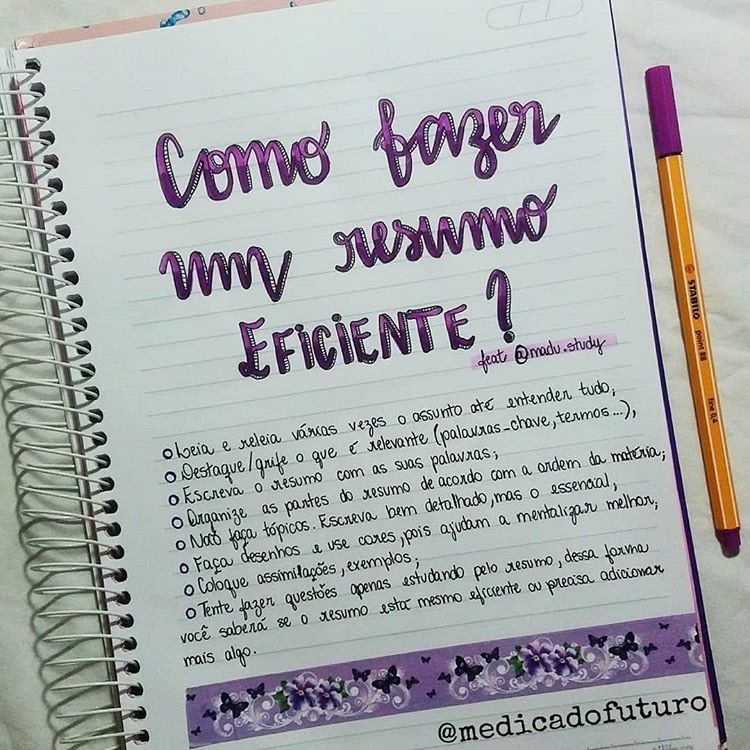 Como fazer
um resumo
EFICIENTE?
feat @madu.study
Leia e releia várias vezes o assunto até entender tudo;
Destaque/grife o que é relevante (palavras-chave, termos...);
Escreva o resumo com as suas palavras;
Organize as partes do resumo de acordo com a ordem da matéria;
Não faça tópicos. Escreva bem detalhado, mas o essencial;
Faça desenhos e use cores, pois ajudam a mentalizar melhor;
Coloque assimilações, exemplos;
Tente fazer questões apenas estudando pelo resumo, dessa forma
você saberá se o resumo está mesmo eficiente ou precisa adicionar
mais algo.
@medicadofuturo
STABILO point 88 fine 0,4